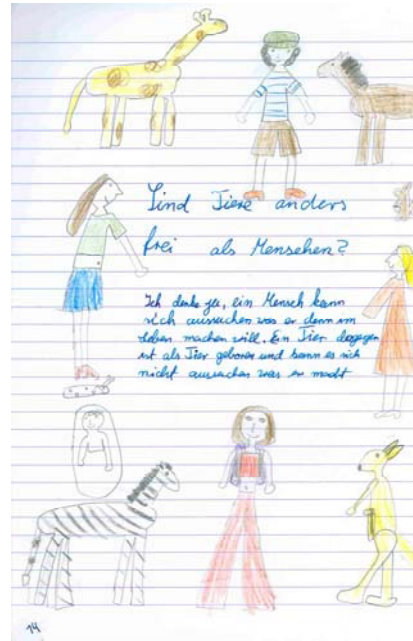 Sind Tiere anders
frei als Menschen?
Ich denke ja, ein Mensch kann
sich aussuchen was er denn im
Leben machen will. Ein Tier dagegen
ist als Tier geboren und kann es sich
nicht aussuchen was er macht
14